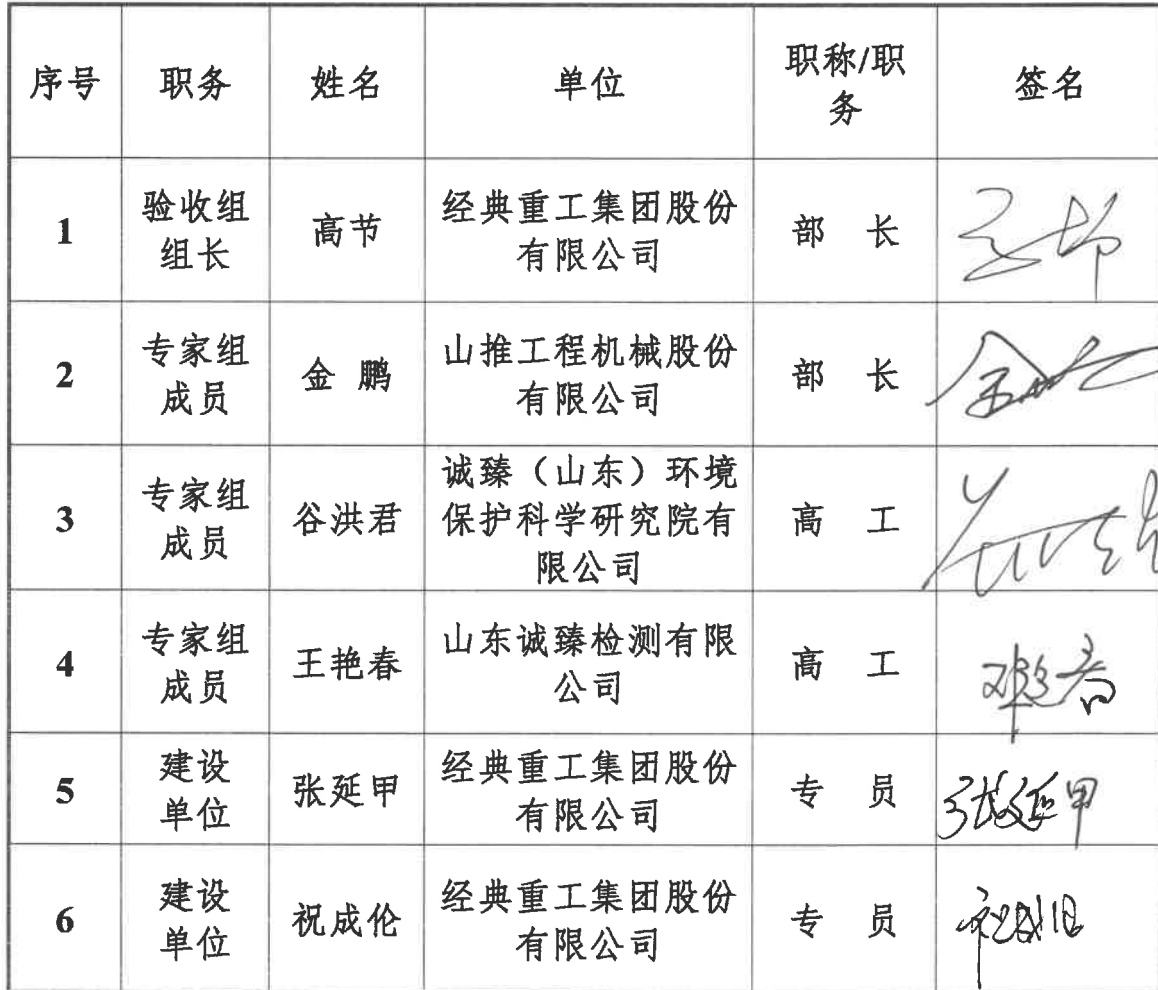 序号 职务 姓名 单位 职称/职
务 签名
1 验收组
组长 高节 经典重工集团股份
有限公司 部 长 高节
2 专家组
成员 金 鹏 山推工程机械股份
有限公司 部 长
3 专家组
成员 谷洪君 诚臻（山东）环境
保护科学研究院有
限公司 高 工
4 专家组
成员 王艳春 山东诚臻检测有限
公司 高 工
5 建设
单位 张延甲 经典重工集团股份
有限公司 专 员 张延甲
6 建设
单位 祝成伦 经典重工集团股份
有限公司 专 员